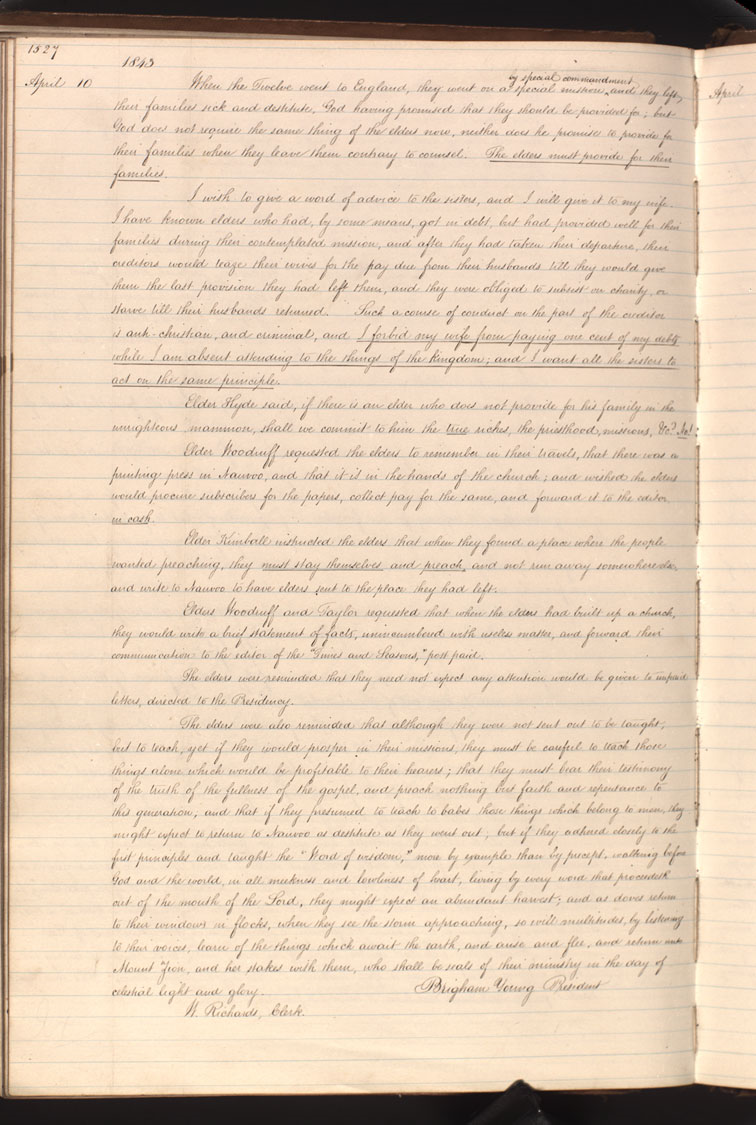 1527
1843
April 10
by special commandment
When the Twelve went to England, they went on a special mission, and they left
their families sick and destitute, God having promised that they should be provided for; but
God does not require the same thing of the elders now, neither does he promise to provide for
their families when they leave them contrary to counsel. The elders must provide for their
families.
I wish to give a word of advice to the sisters, and I will give it to my wife.
I have known elders who had, by some means, got in debt, but had provided well for their
families during their contemplated mission, and after they had taken their departure, their
creditors would teaze their wives for the pay due from their husbands till they would give
them the last provision they had left them, and they were obliged to subsist on charity, or
starve till their husbands returned. Such a course of conduct on the part of the creditor
is anti-christian, and criminal, and I forbid my wife from paying one cent of my debts
while I am absent attending to the things of the Kingdom; and I want all the sisters to
act on the same principle.
Elder Hyde said, if there is an elder who does not provide for his family in the
unrighteous mammon, shall we commit to him the true riches, the priesthood, missions, &c? No!
Elder Woodruff requested the elders to remember in their travels, that there was a
printing press in Nauvoo, and that it is in the hands of the church; and wished the elders
would procure subscribers for the papers, collect pay for the same, and forward it to the editor
in cash.
Elder Kimball instructed the elders that when they found a place where the people
wanted preaching, they must stay themselves and preach, and not run away somewhere else,
and write to Nauvoo to have elders sent to the place they had left.
Elders Woodruff and Taylor requested that when the elders had built up a church,
they would write a brief statement of facts, unincumbered with useless matter, and forward their
communication to the editor of the "Times and Seasons," post paid.
The elders were reminded that they need not expect any attention would be given to unpaid
letters, directed to the Presidency.
The elders were also reminded that although they were not sent out to be taught,
but to teach, yet if they would prosper in their missions, they must be careful to teach those
things alone which would be profitable to their hearers; that they must bear their testimony
of the truth of the fullness of the gospel, and preach nothing but faith and repentance to
this generation; and that if they presumed to teach to babes those things which belong to men, they
might expect to return to Nauvoo as destitute as they went out; but if they adhered closely to the
first principles and taught the "Word of wisdom," more by example than by precept, walking before
God and the world, in all meekness and lowliness of heart, living by every word that proceedeth
out of the mouth of the Lord, they might expect an abundant harvest; and as doves return
to their windows in flocks, when they see the storm approaching, so will multitudes, by listening
to their voices, learn of the things which await the earth, and arise and flee, and return unto
Mount Zion, and her stakes with them, who shall be seals of their ministry in the day of
celestial light and glory. Brigham Young President
W. Richards, Clerk.
April